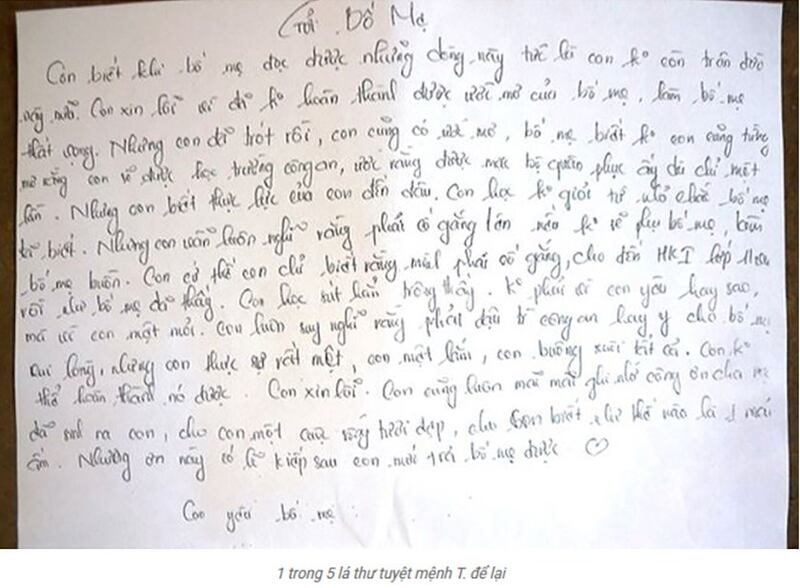 Gửi Bố Mẹ
Con biết khi bố mẹ đọc được những dòng này tức là con ko còn trên đời
này nữa. Con xin lỗi vì đã ko hoàn thành được ước mơ của bố mẹ, làm bố mẹ
thất vọng. Nhưng con đã trót rồi, con cũng có ước mơ, bố mẹ biết ko con cũng từng
mơ rằng con sẽ được học trường công an, ước rằng được mặc bộ quân phục ấy dù chỉ một
lần. Nhưng con biết thực lực của con đến đâu. Con học ko giỏi từ nhỏ chắc bố mẹ
đã biết. Nhưng con vẫn luôn nghĩ rằng phải cố gắng lên nếu ko sẽ phụ bố mẹ, làm
bố mẹ buồn. Con cứ thế con chỉ biết rằng mình phải cố gắng, cho đến HKI lớp
rồi như bố mẹ đã thấy. Con học sút hẳn trông thấy. Ko phải vì con yêu hay sao,
mà vì con mệt mỏi. Con luôn suy nghĩ rằng phải đậu trường công an hay y cho bố mẹ
vui lòng, nhưng con thực sự rất mệt, con mệt lắm, con buông xuôi tất cả. Con ko
thể hoàn thành nó được. Con xin lỗi. Con cũng luôn mãi mãi ghi nhớ công ơn cha mẹ
đã sinh ra con, cho con một cuộc sống tươi đẹp, cho con biết như thế nào là 1 mái
ấm. Nhưng ơn này có lẽ kiếp sau con mới trả bố mẹ được ♡
Con yêu bố mẹ
1 trong 5 lá thư tuyệt mệnh T. để lại